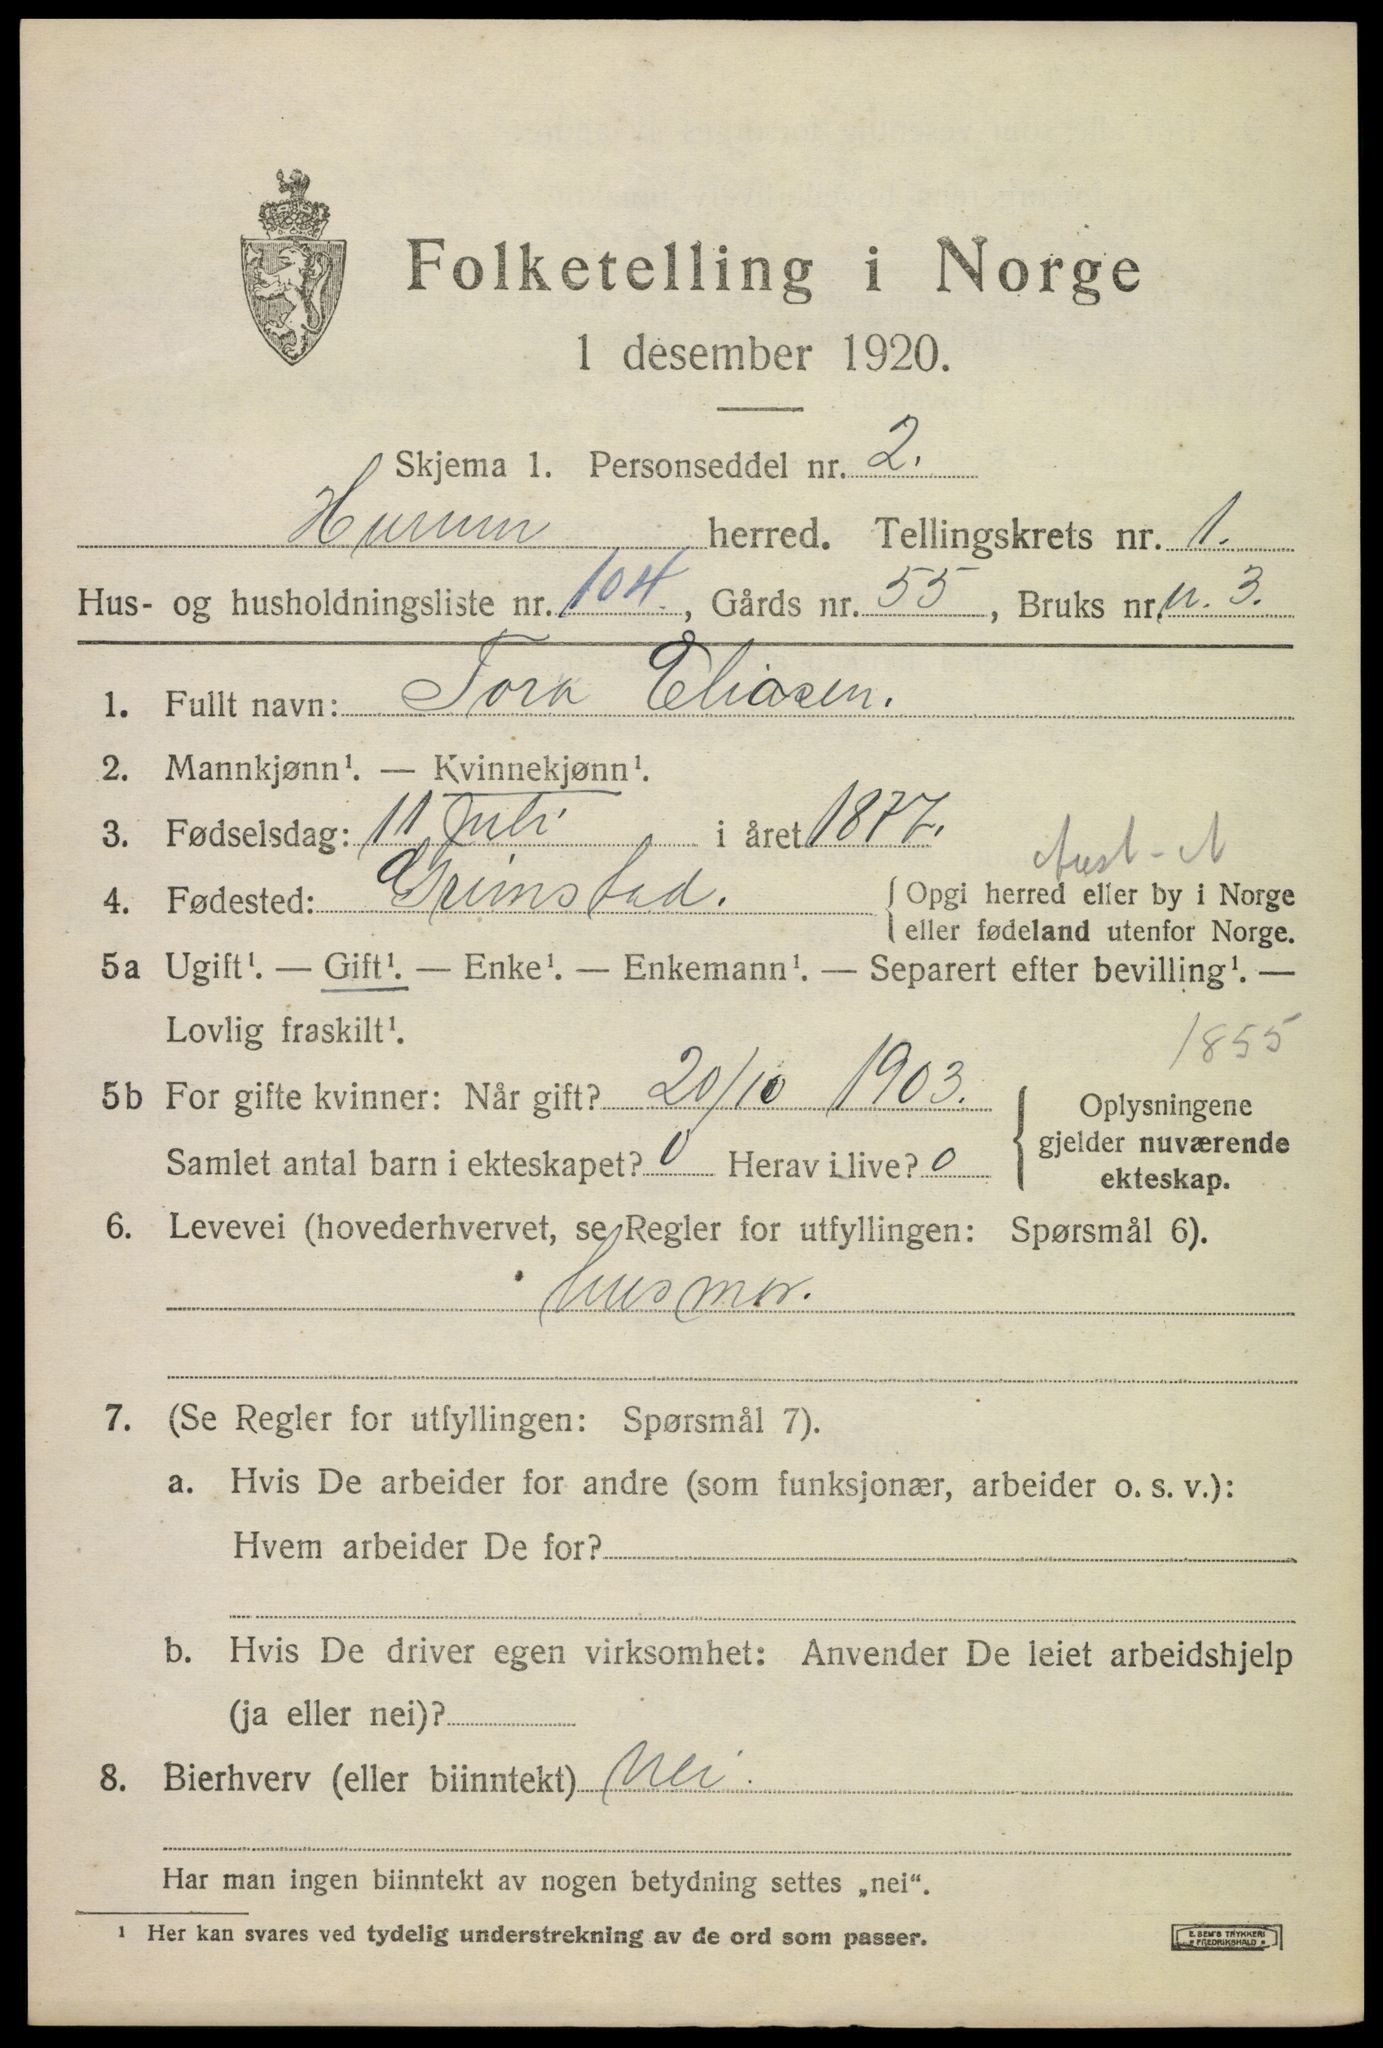 Folketelling i Norge
1 desember 1920.
Skjema 1. Personseddel nr. 2.
Hurum herred. Tellingskrets nr. 1.
Hus- og husholdningsliste nr. 104., Gårds nr. 55, Bruks nr. n. 3.
1. Fullt navn: Tora Eliasen.
2. Mannkjønn¹. — Kvinnekjønn¹.
3. Fødselsdag: 11 Juli i året 1877.
Aust-A
4. Fødested: Grimstad. Opgi herred eller by i Norge
eller fødeland utenfor Norge.
5a Ugift¹. — Gift¹. — Enke¹. — Enkemann¹. — Separert efter bevilling¹. —
Lovlig fraskilt¹.
1855
5b For gifte kvinner: Når gift? 20/10 1903. Oplysningene
gjelder nuværende
ekteskap.
Samlet antal barn i ekteskapet? 0 Herav i live? 0
6. Levevei (hovederhvervet, se Regler for utfyllingen: Spørsmål 6).
husmor.
7. (Se Regler for utfyllingen: Spørsmål 7).
a. Hvis De arbeider for andre (som funksjonær, arbeider o. s. v.):
Hvem arbeider De for?
b. Hvis De driver egen virksomhet: Anvender De leiet arbeidshjelp
(ja eller nei)?
8. Bierhverv (eller biinntekt) Nei.
Har man ingen biinntekt av nogen betydning settes „nei“.
¹ Her kan svares ved tydelig understrekning av de ord som passer.
E. SEM'S TRYKKERI
FREDRIKSHALD